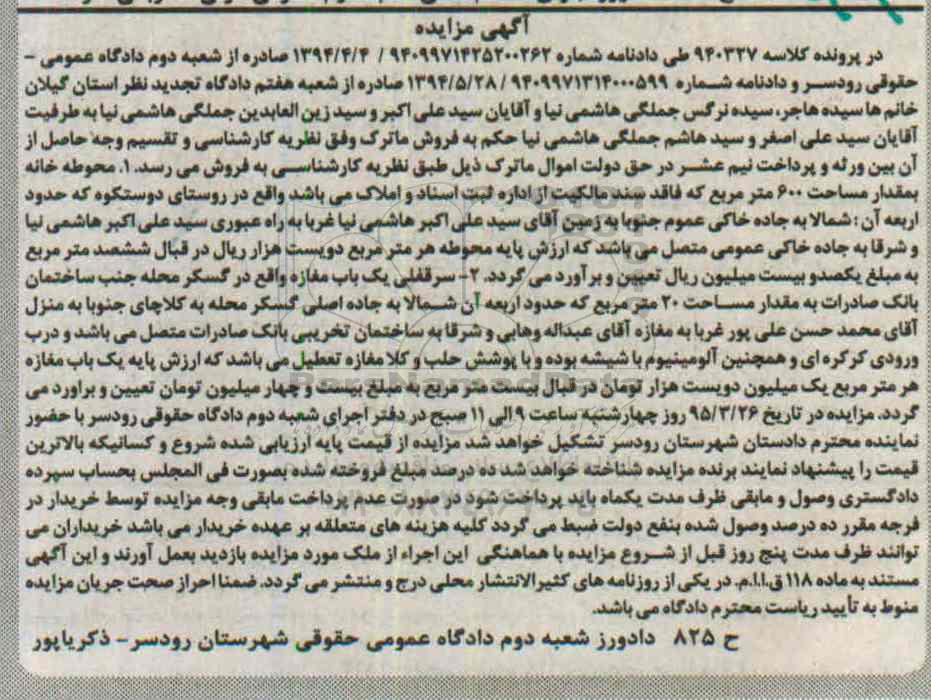 آگهی مزایده
در پرونده کلاسه ۹۴۰۳۲۷ طی دادنامه شماره ۹۴۰۹۹۷۱۴۲۵۲۰۰۲۶۲ / ۱۳۹۴/۴/۴ صادره از شعبه دوم دادگاه عمومی -
حقوقی رودسر و دادنامه شماره ۹۴۰۹۹۷۱۳۱۴۰۰۰۵۹۹ / ۱۳۹۴/۵/۲۸ صادره از شعبه هفتم دادگاه تجدید نظر استان گیلان
خانم ها سیده هاجر، سیده نرگس جملگی هاشمی نیا و آقایان سید علی اکبر و سید زین العابدین جملگی هاشمی نیا به طرفیت
آقایان سید علی اصغر و سید هاشم جملگی هاشمی نیا حکم به فروش ماترک وفق نظریه کارشناسی و تقسیم وجه حاصل از
آن بین ورثه و پرداخت نیم عشر در حق دولت اموال ماترک ذیل طبق نظریه کارشناسی به فروش می رسد. ۱. محوطه خانه
بمقدار مساحت ۶۰۰ متر مربع که فاقد سند مالکیت از اداره ثبت اسناد و املاک می باشد واقع در روستای دوستکوه که حدود
اربعه آن : شمالا به جاده خاکی عموم جنوبا به زمین آقای سید علی اکبر هاشمی نیا غربا به راه عبوری سید علی اکبر هاشمی نیا
و شرقا به جاده خاکی عمومی متصل می باشد که ارزش پایه محوطه هر متر مربع دویست هزار ریال در قبال ششصد متر مربع
به مبلغ یکصدو بیست میلیون ریال تعیین و برآورد می گردد. ۲- سرقفلی یک باب مغازه واقع در گسکر محله جنب ساختمان
بانک صادرات به مقدار مساحت ۲۰ متر مربع که حدود اربعه آن شمالا به جاده اصلی گسکر محله به کلاچای جنوبا به منزل
آقای محمد حسن علی پور غربا به مغازه آقای عبداله وهابی و شرقا به ساختمان تخریبی بانک صادرات متصل می باشد و درب
ورودی کرکره ای و همچنین آلومینیوم با شیشه بوده و با پوشش حلب و کلا مغازه تعطیل می باشد که ارزش پایه یک باب مغازه
هر متر مربع یک میلیون دویست هزار تومان در قبال بیست متر مربع به مبلغ بیست و چهار میلیون تومان تعیین و براورد می
گردد. مزایده در تاریخ ۹۵/۳/۲۶ روز چهارشنبه ساعت ۹ الی ۱۱ صبح در دفتر اجرای شعبه دوم دادگاه حقوقی رودسر با حضور
نماینده محترم دادستان شهرستان رودسر تشکیل خواهد شد مزایده از قیمت پایه ارزیابی شده شروع و کسانیکه بالاترین
قیمت را پیشنهاد نمایند برنده مزایده شناخته خواهد شد ده درصد مبلغ فروخته شده بصورت فی المجلس بحساب سپرده
دادگستری وصول و مابقی ظرف مدت یکماه باید پرداخت شود در صورت عدم پرداخت مابقی وجه مزایده توسط خریدار در
فرجه مقرر ده درصد وصول شده بنفع دولت ضبط می گردد کلیه هزینه های متعلقه بر عهده خریدار می باشد خریداران می
توانند ظرف مدت پنج روز قبل از شروع مزایده با هماهنگی این اجراء از ملک مورد مزایده بازدید بعمل آورند و این آگهی
مستند به ماده ۱۱۸ ق.ا.ا.م. در یکی از روزنامه های کثیرالانتشار محلی درج و منتشر می گردد. ضمنا احراز صحت جریان مزایده
منوط به تأیید ریاست محترم دادگاه می باشد.
ح ۸۲۵ دادورز شعبه دوم دادگاه عمومی حقوقی شهرستان رودسر- ذکریاپور